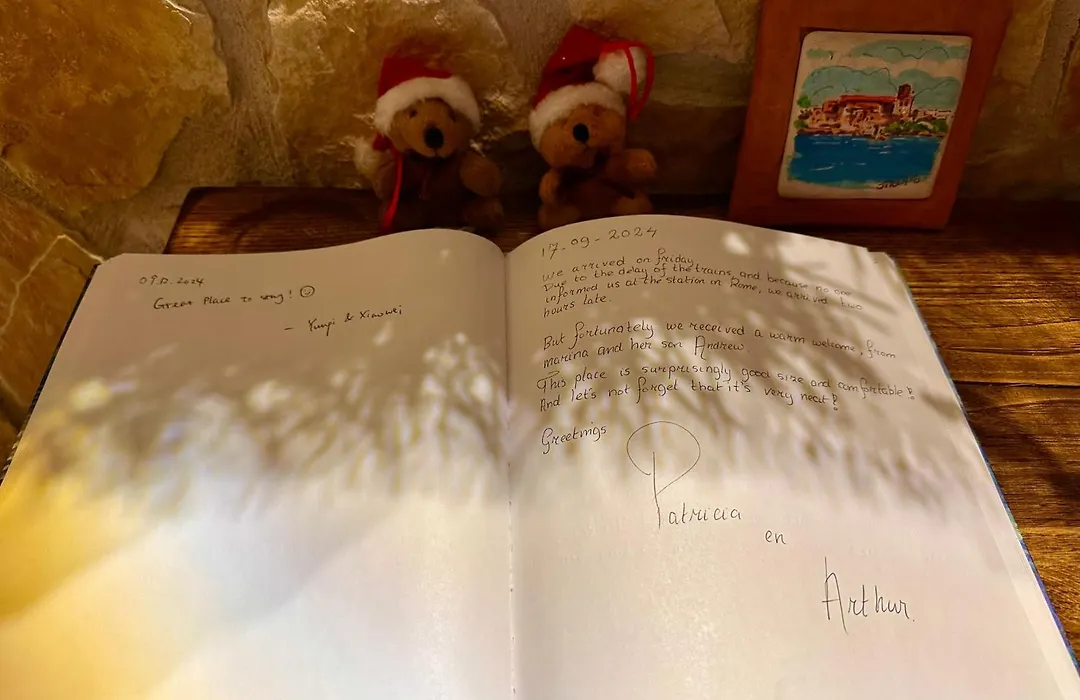 09.12.2024
Great Place to stay! ☺
– Yunyi & Xiaowei
17-09-2024
We arrived on friday,
Due to the delay of the trains, and because no one
informed us at the station in Rome, we arrived two
hours late.
But fortunately we received a warm welcome, from
marina and her son Andrew.
This place is surprisingly good size and comfortable!
And let's not forget that it's very neat!
Greetings
Patricia
en
Arthur.